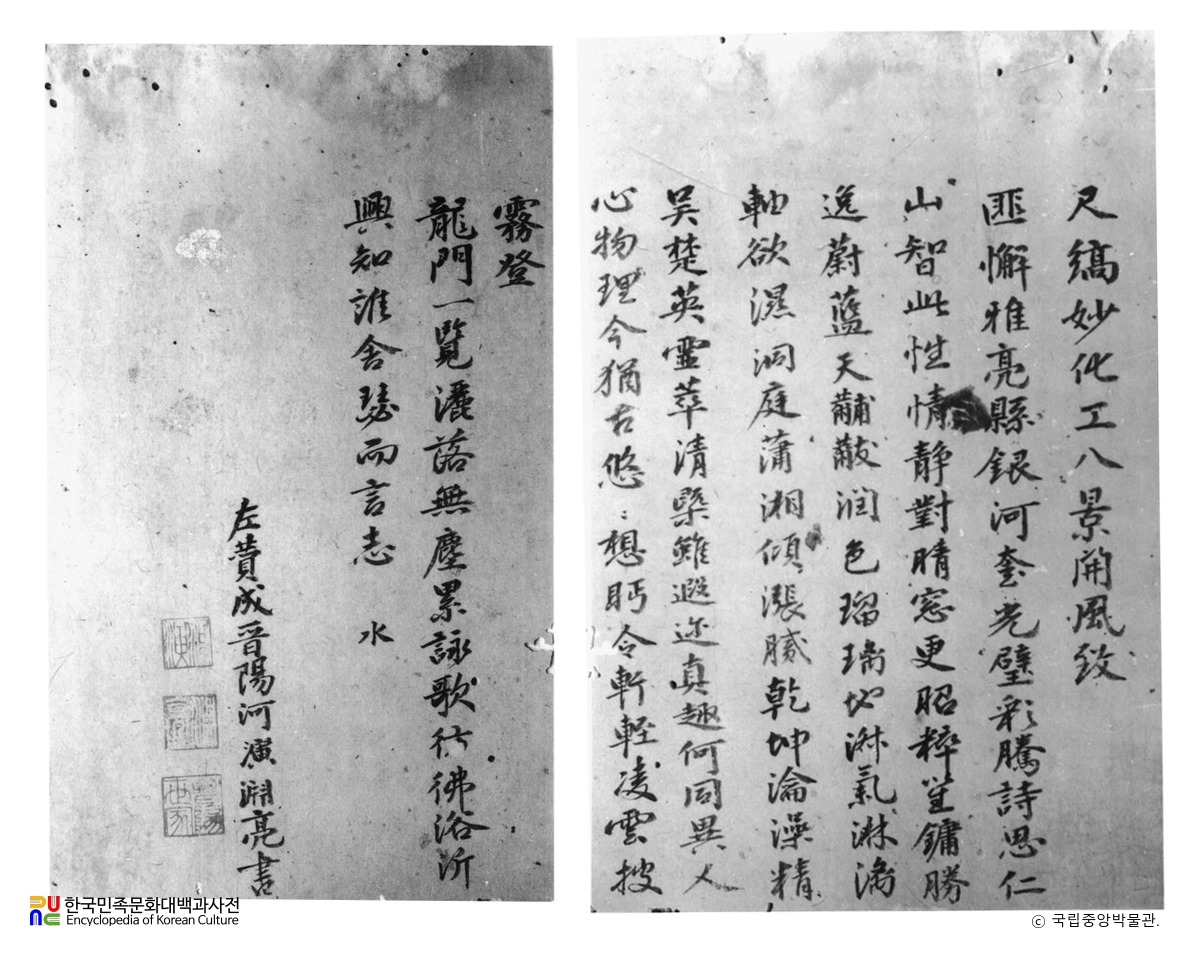 尺縞妙化工八景開風致
匪懈雅亮縣銀河奎光璧彩騰詩思仁
山智此性情靜對晴窓更昭粹笙鏞勝
逸蔚藍天黼黻潤色瑠璃地淋氣淋漓
軸欲濕洞庭瀟湘傾漲膩乾坤淪澡精
吳楚英靈萃清槩雖遐迩真趣何同異人
心物理今猶古悠〻想眄令軒輊凌雲披
霧登
龍門一覽灑落無塵累詠歌彷彿浴沂
興知誰舍瑟而言志 水
左贊成晉陽河演淵亮書
한국민족문화대백과사전
Encyclopedia of Korean Culture
ⓒ 국립중앙박물관.